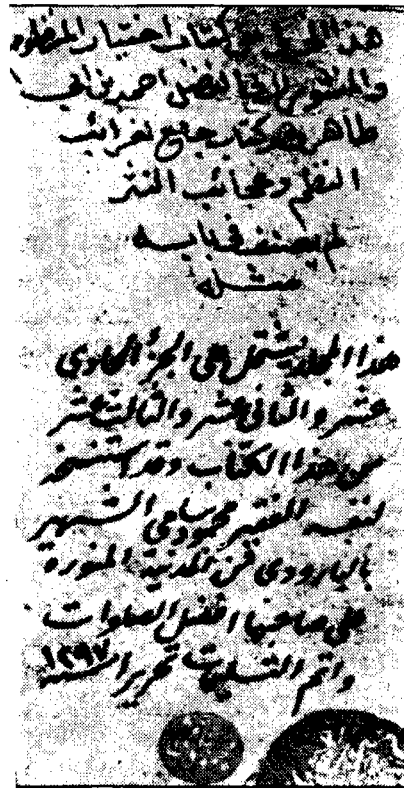 هذا الجزء من كتاب اختيار المنظوم
والمنثور لابى الفضل احمد بن ابى
طاهر وهو كتاب جامع لغرائب
النظم وعجائب النثر
لم يصنف فى بابه
مثله
هذا المجلد يشتمل على الجزء الحادى
عشر والثانى عشر والثالث عشر
من هذا الكتاب وقد استنسخه
لنفسه الفقير محمود سامى الشهير
بالبارودى من المدينة المنورة
على صاحبها افضل الصلوات
واتم التسليمات تحريرا سنه ١٢٩٧